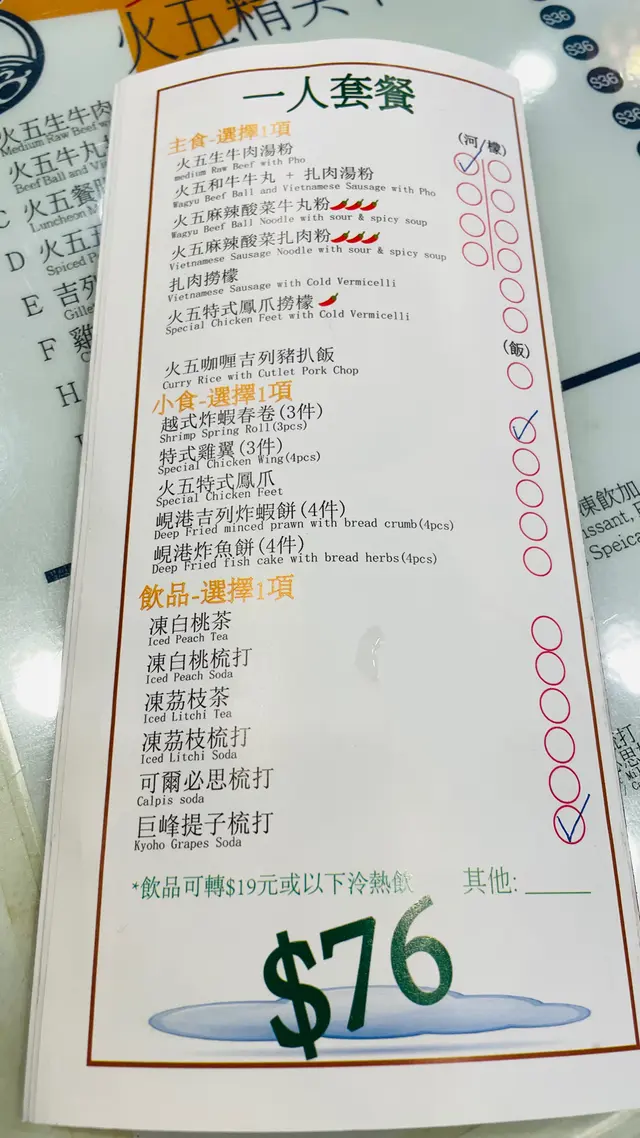 火五精
火五生牛肉
Medium Raw Beef w
火五牛丸
Beef Ball and Vi
C 火五餐
Luncheon M
D 火五
Spiced P
E 吉列
Gille
F 雞
H
$36
$36
$36
$36
一人套餐
主食-選擇1項
(河/檬)
火五生牛肉湯粉
medium Raw Beef with Pho
火五和牛牛丸 + 扎肉湯粉
Wagyu Beef Ball and Vietnamese Sausage with Pho
火五麻辣酸菜牛丸粉
Wagyu Beef Ball Noodle with sour & spicy soup
火五麻辣酸菜扎肉粉
Vietnamese Sausage Noodle with sour & spicy soup
扎肉撈檬
Vietnamese Sausage with Cold Vermicelli
火五特式鳳爪撈檬
Special Chicken Feet with Cold Vermicelli
(飯)
火五咖喱吉列豬扒飯
Curry Rice with Cutlet Pork Chop
小食-選擇1項
越式炸蝦春卷(3件)
Shrimp Spring Roll(3pcs)
特式雞翼(3件)
Special Chicken Wing(4pcs)
火五特式鳳爪
Special Chicken Feet
峴港吉列炸蝦餅(4件)
Deep Fried minced prawn with bread crumb(4pcs)
峴港炸魚餅(4件)
Deep Fried fish cake with bread herbs(4pcs)
飲品-選擇1項
凍白桃茶
Iced Peach Tea
凍白桃梳打
Iced Peach Soda
凍荔枝茶
Iced Litchi Tea
凍荔枝梳打
Iced Litchi Soda
可爾必思梳打
Calpis soda
巨峰提子梳打
Kyoho Grapes Soda
*飲品可轉$19元或以下泠熱飲
其他:
$76
凍飲加
issant, F
Speica
梳打
思